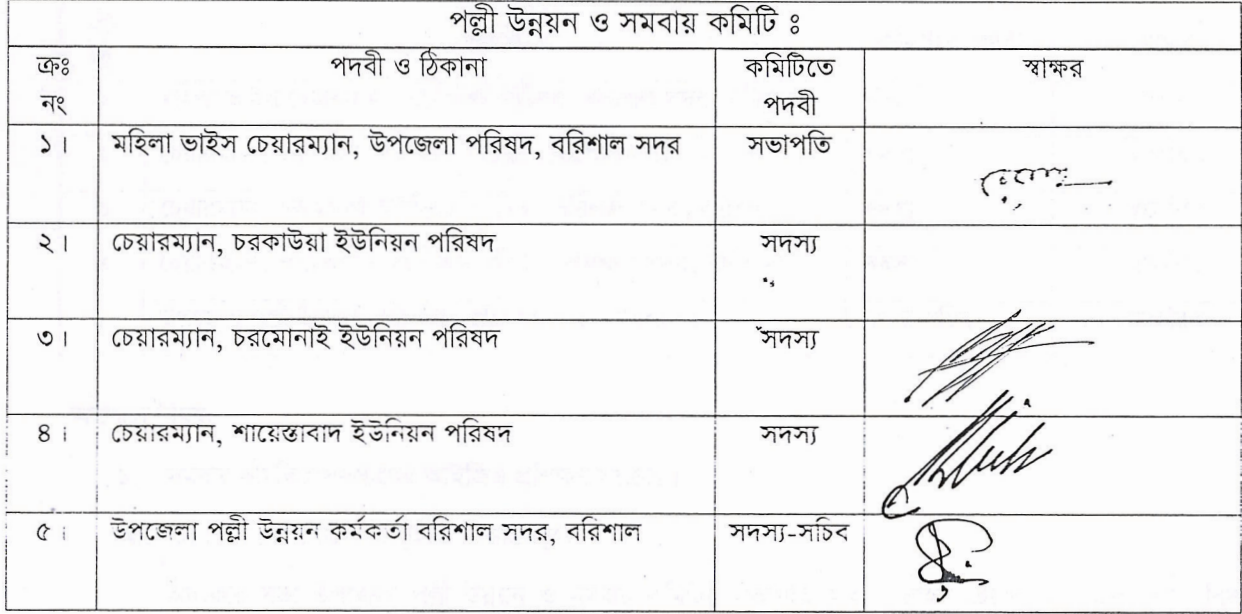 পল্লী উন্নয়ন ও সমবায় কমিটি ঃ
ক্রঃ নং পদবী ও ঠিকানা কমিটিতে পদবী স্বাক্ষর
১। মহিলা ভাইস চেয়ারম্যান, উপজেলা পরিষদ, বরিশাল সদর সভাপতি
২। চেয়ারম্যান, চরকাউয়া ইউনিয়ন পরিষদ সদস্য
৩। চেয়ারম্যান, চরমোনাই ইউনিয়ন পরিষদ সদস্য
৪। চেয়ারম্যান, শায়েস্তাবাদ ইউনিয়ন পরিষদ সদস্য
৫। উপজেলা পল্লী উন্নয়ন কর্মকর্তা বরিশাল সদর, বরিশাল সদস্য-সচিব